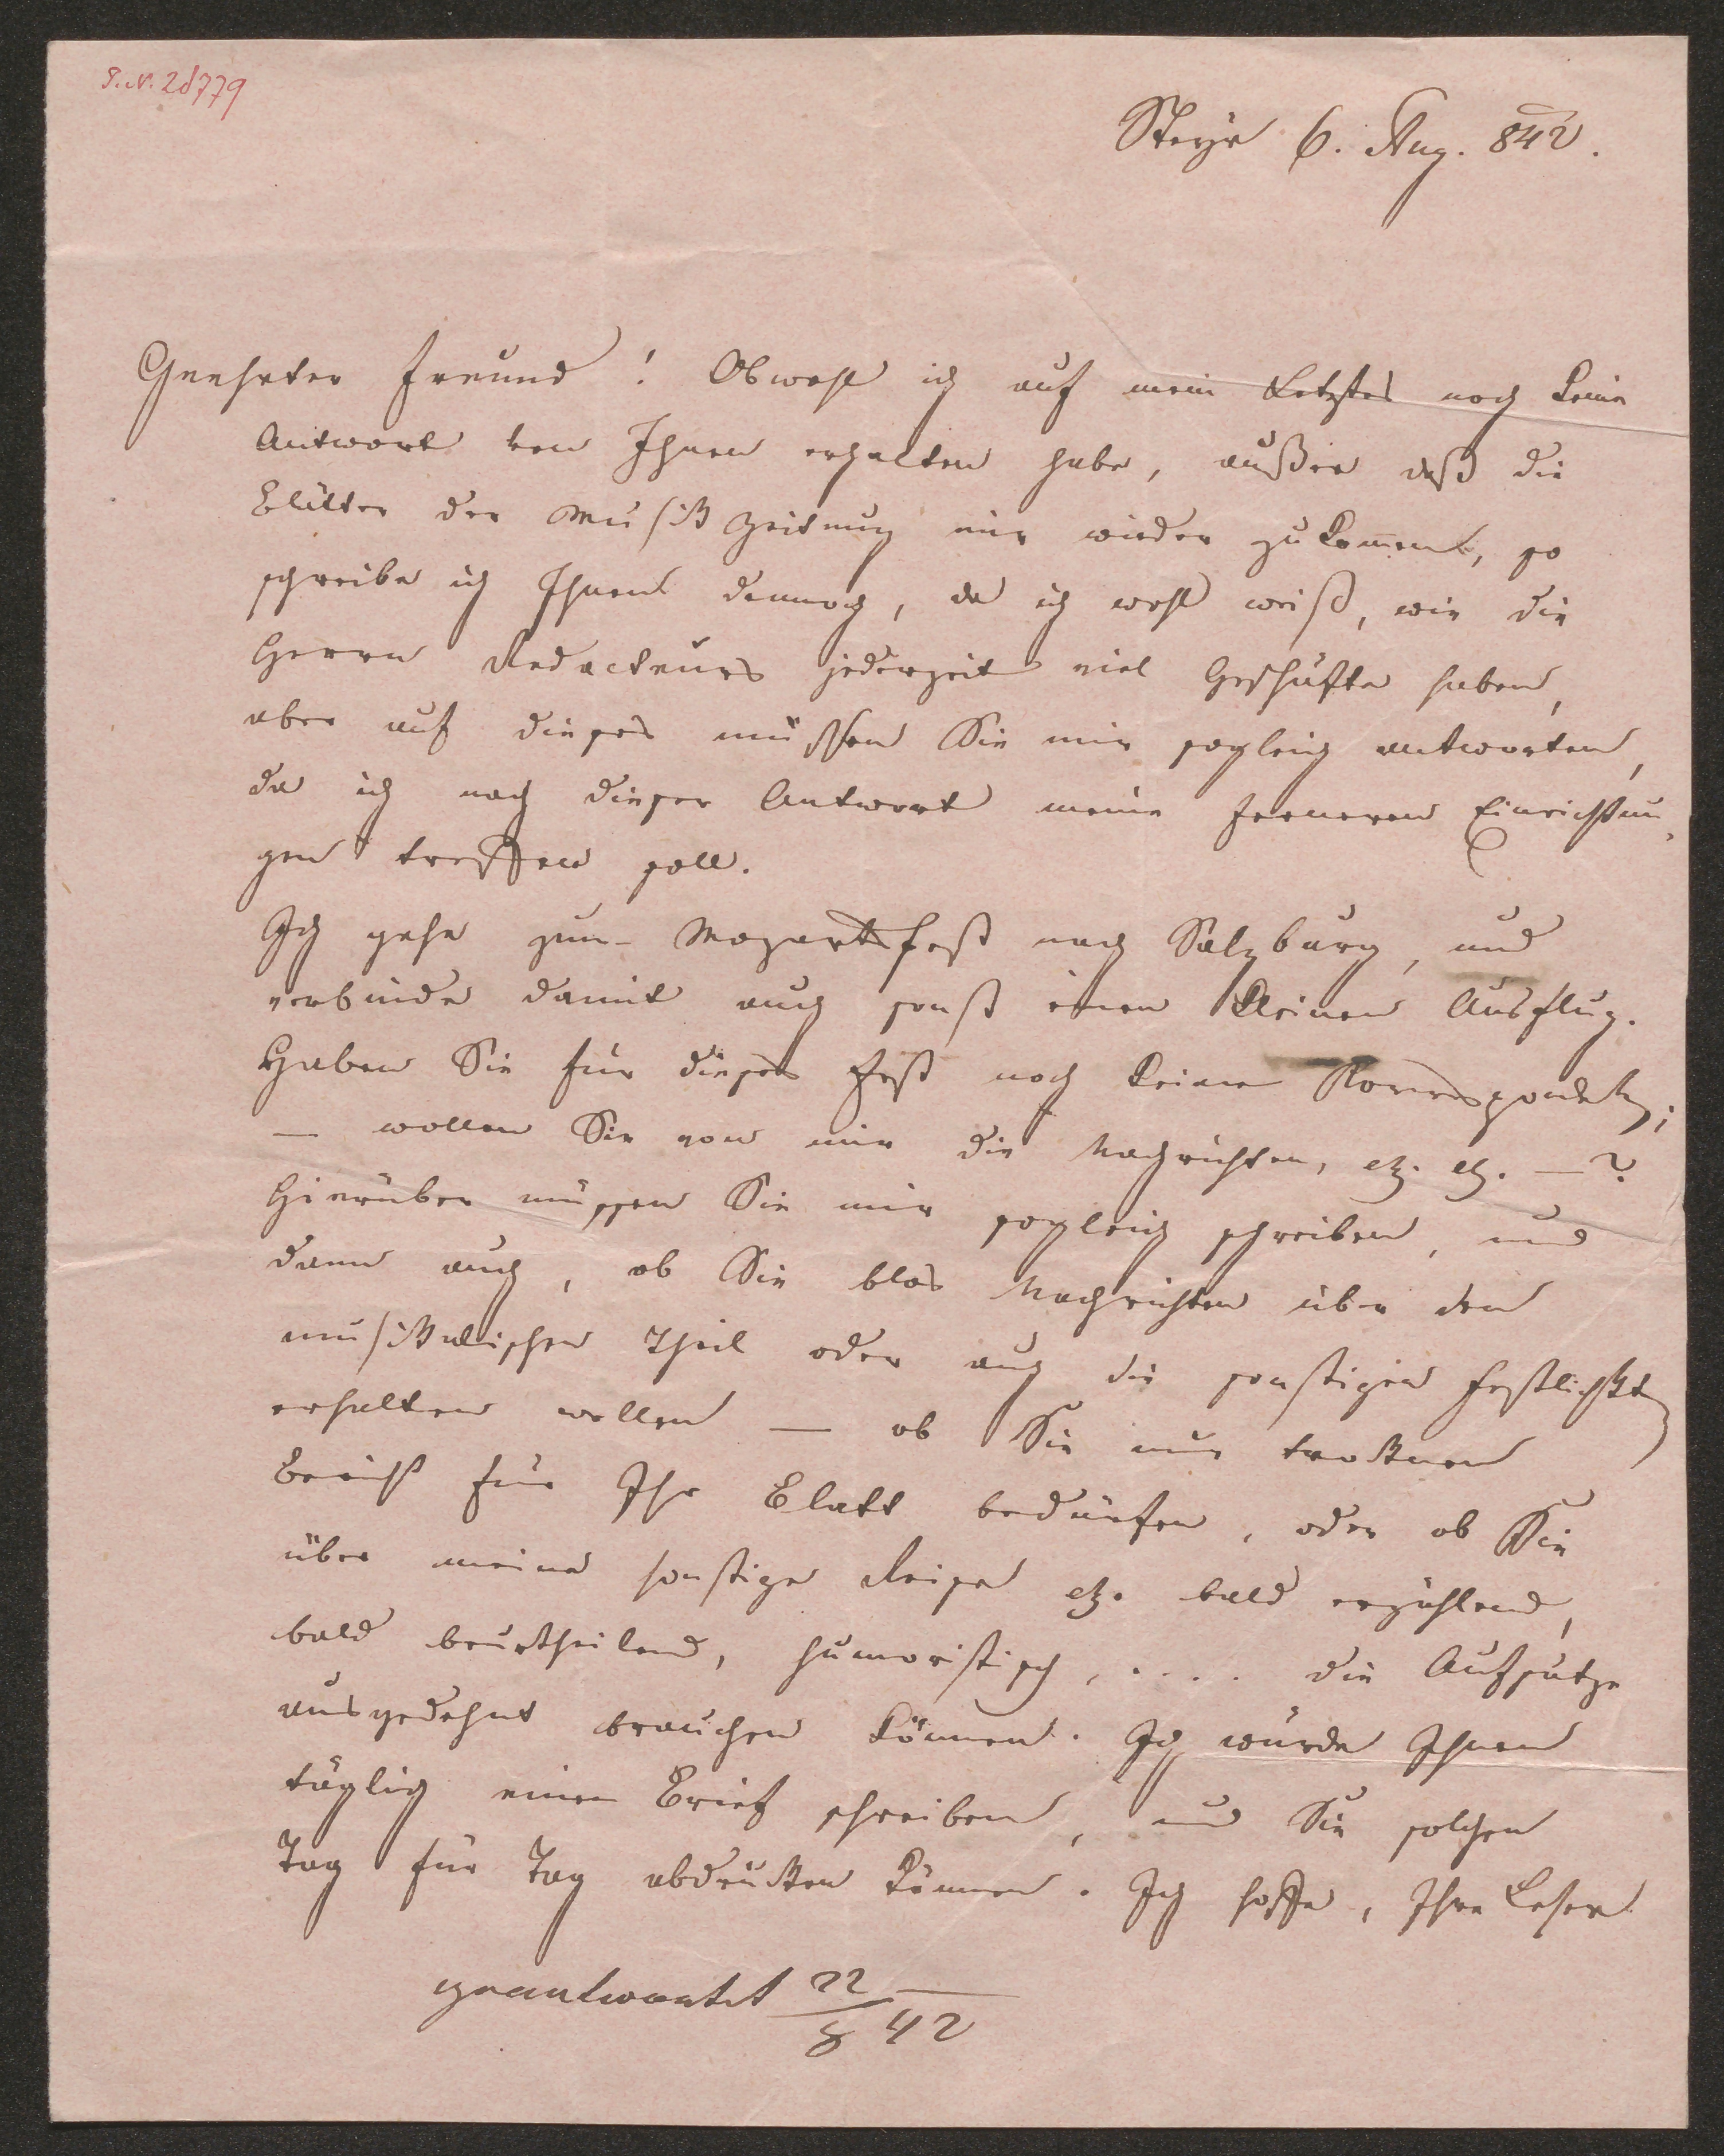 I.N. 28779
Steyr 6. Aug. 842.
Geehrter Freund! Obwohl ich auf mein Letztes noch keine
Antwort von Ihnen erhalten habe, außer daß die
Blätter der Musikzeitung mir wieder zukom̄en, so
schreibe ich Ihnen dennoch, da ich wohl weiß, wie die
Herren Redacteurs jederzeit viel Geschäfte haben,
aber auf dieses müßen Sie mir sogleich antworten,
da ich nach dieser Antwort meine ferneren Einrichtun-
gen treffen soll.
Ich gehe zum Mozartsfest nach Salzburg, und
verbinde damit auch sonst einen kleinen Ausflug.
Haben Sie für dieses Fest noch keinen Korrespondenten;
— wollen Sie von mir die Nachrichten, etz. etz. — ?
Hierüber müssen Sie mir sogleich schreiben, und
dann auch, ob Sie blos Nachrichten über den
musikalischen Theil oder auch die sonstigen Festlichktn
erhalten wollen — ob Sie nur troknen
Bericht für Ihr Blatt bedürfen, oder ob Sie
über meine sonstige Reise etz. bald erzählend,
bald beurtheilend, humoristisch, .... die Aufsätze
ausgedehnt brauchen können. Ich würde Ihnen
täglich einen Brief schreiben, und Sie solchen
Tag für Tag abdruken können. Ich hoffe, Ihre Leser
geantwortet 22/8 42